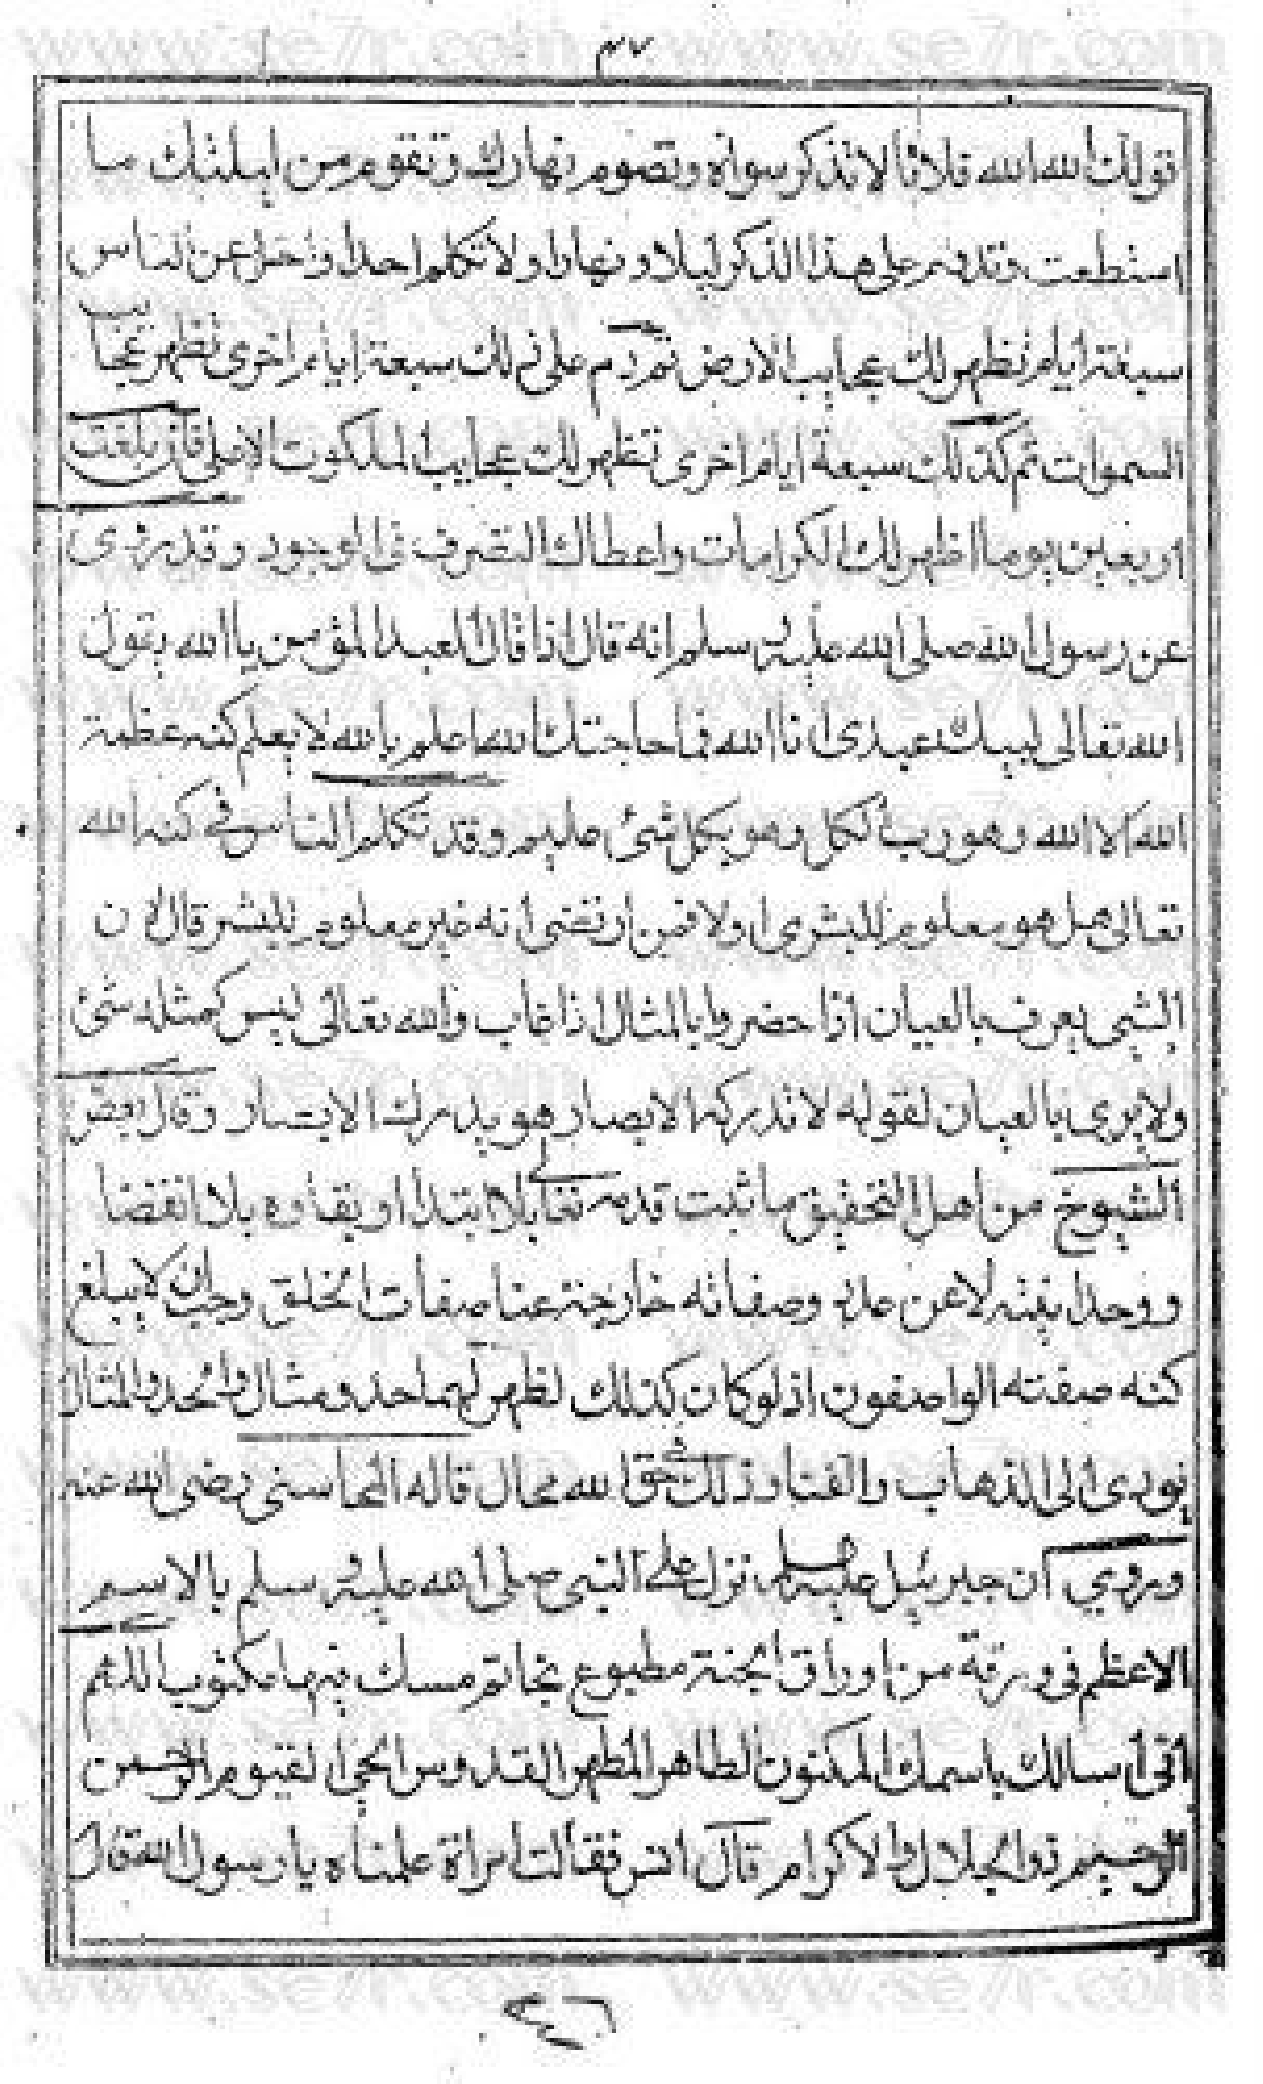 www.se7r.com www.se7r.com
٣٧
قولك الله الله ثلاثا لا تذكر سواه وتصوم نهارك وتقوم من ليلتك ما
استطعت وتدوم على هذا الذكر ليلا ونهارا ولا تكلم احدا واختل عن الناس
سبعة ايام تظهر لك عجايب الارض ثم دم على ذلك سبعة ايام اخرى تظهر عجايب
السموات ثم كذلك سبعة ايام اخرى تظهر لك عجايب الملكوت الاعلى فان بلغت
اربعين يوما اظهر لك الكرامات واعطاك التصرف في الوجود وقد روى
عن رسول الله صلى الله عليه وسلم انه قال اذا قال العبد المؤمن يا الله يقول
الله تعالى لبيك عبدى انا الله فما حاجتك الله اعلم بالله لا يعلم كنه عظمة
الله الا الله وهو رب الكل وهو بكل شئ عليم وقد تكلم الناس في كنه الله
تعالى هل هو معلوم للبشر ام لا فمن ارتضى انه غير معلوم للبشر قال لان
الشئ يعرف بالعيان اذا حضر وبالمثال اذا غاب والله تعالى ليس كمثله شئ
ولا يرى بالعيان لقوله لا تدركه الابصار هو يدرك الابصار وقال بعض
الشيوخ من اهل التحقيق ما ثبت قدمه تعالى بلا ابتدا وبقاوه بلا انقضا
ووحدا بنفسه لا عن علة وصفاته خارجة عنا صفات الخلق وجب ان لا يبلغ
كنه صفته الواصفون اذ لو كان كذلك لظهر لهم احد ومثال والحد والمثال
يودى الى الذهاب والفنا وذلك في حق الله محال قاله المحاسبى رضى الله عنه
وروي ان جبرئيل عليه السلم نزل على النبى صلى الله عليه وسلم بالاسم
الاعظم فى ورقة من اوراق الجنة مطبوع بخاتم مسك فيها مكتوب اللهم
انى اسالك باسمك المكنون الطاهر المطهر القدوس الحى القيوم الرحمن
الرحيم ذو الجلال والاكرام قال انس فقالت امراة علمناه يا رسول الله فقال
www.se7r.com www.se7r.com